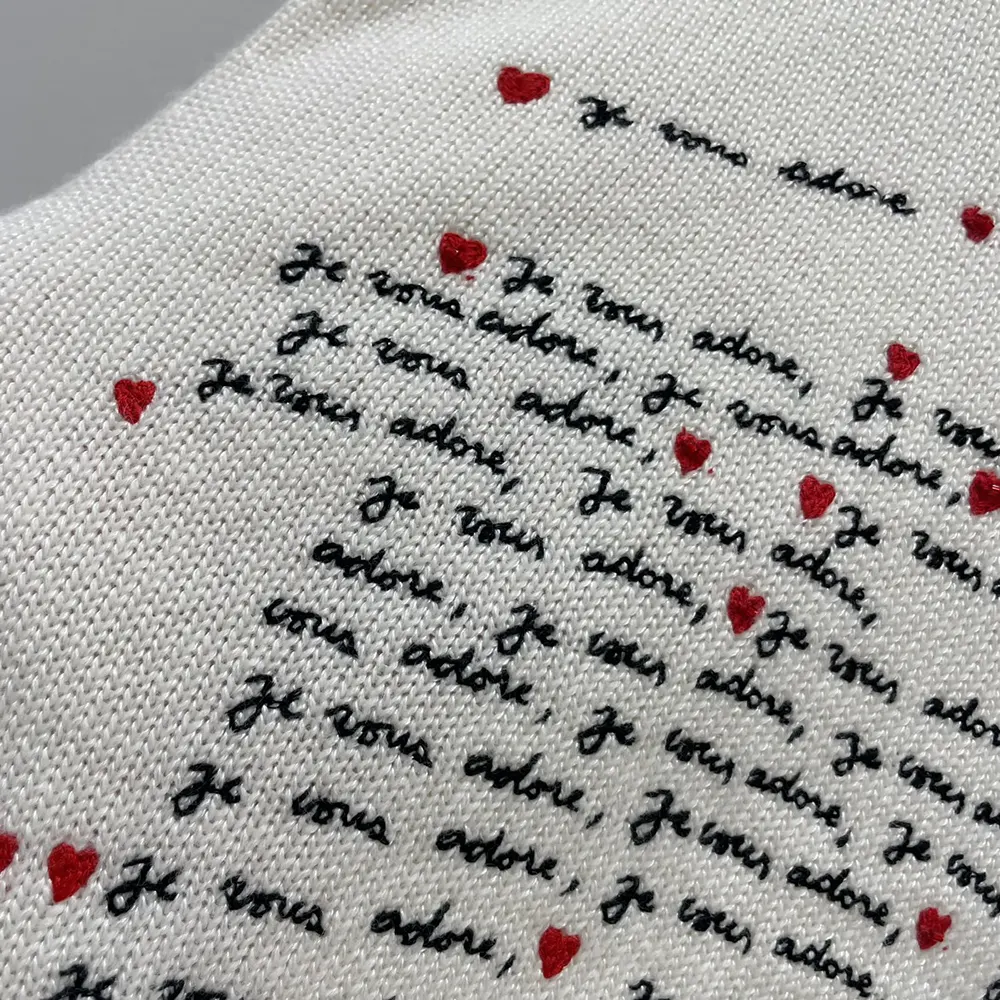 Je vous adore
Je vous adore, Je vous
Je vous adore, Je vous adore,
Je vous adore, Je vous
Je vous adore, Je vous adore,
Je vous adore, Je vous ador
adore, Je vous adore, Je vous a
vous adore, Je vous adore, Je vous
Je vous adore, Je vous adore,
Je vous adore, Je vous adore
Je vous adore,
Je